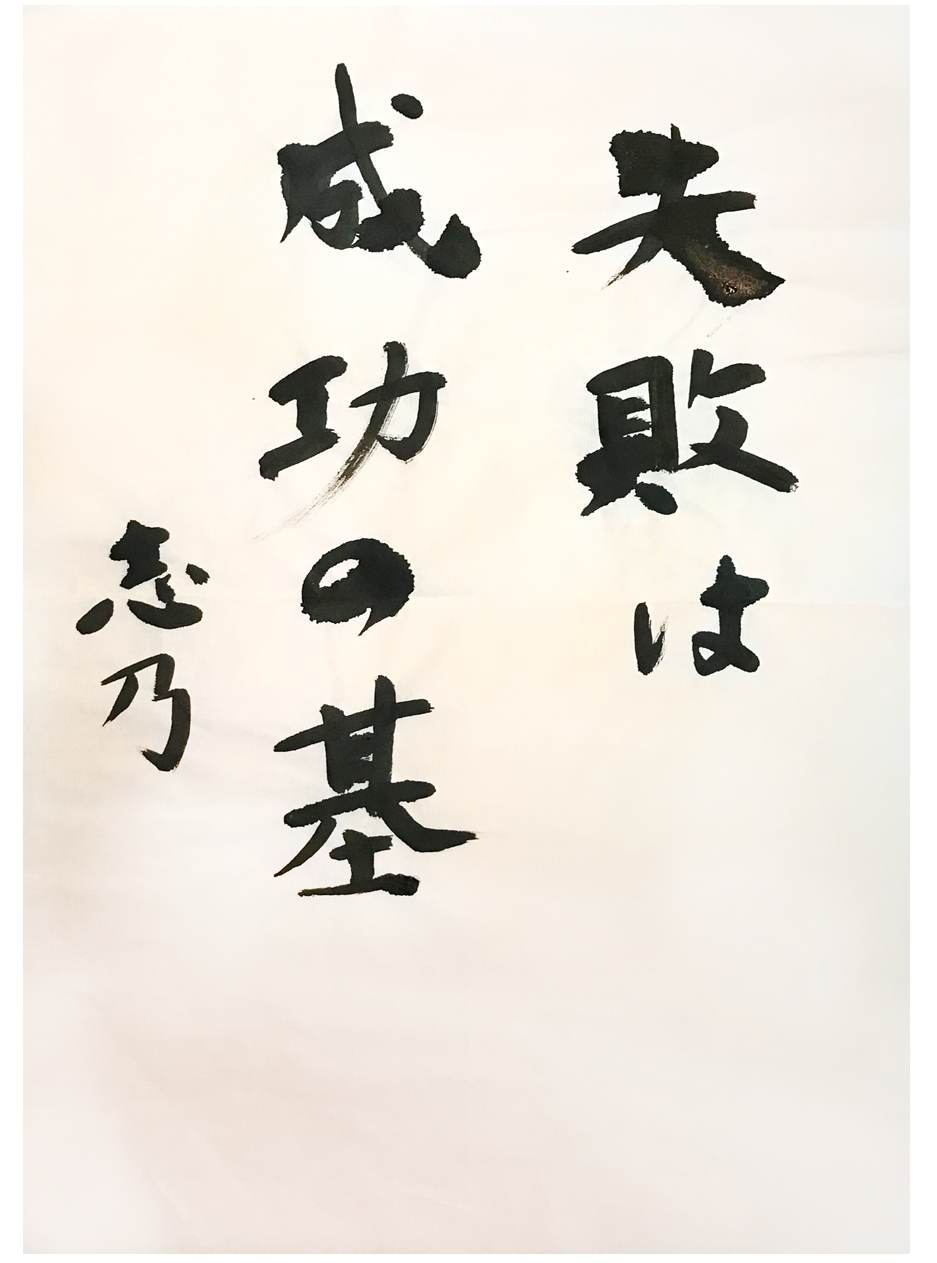 失敗は
成功の基
志乃